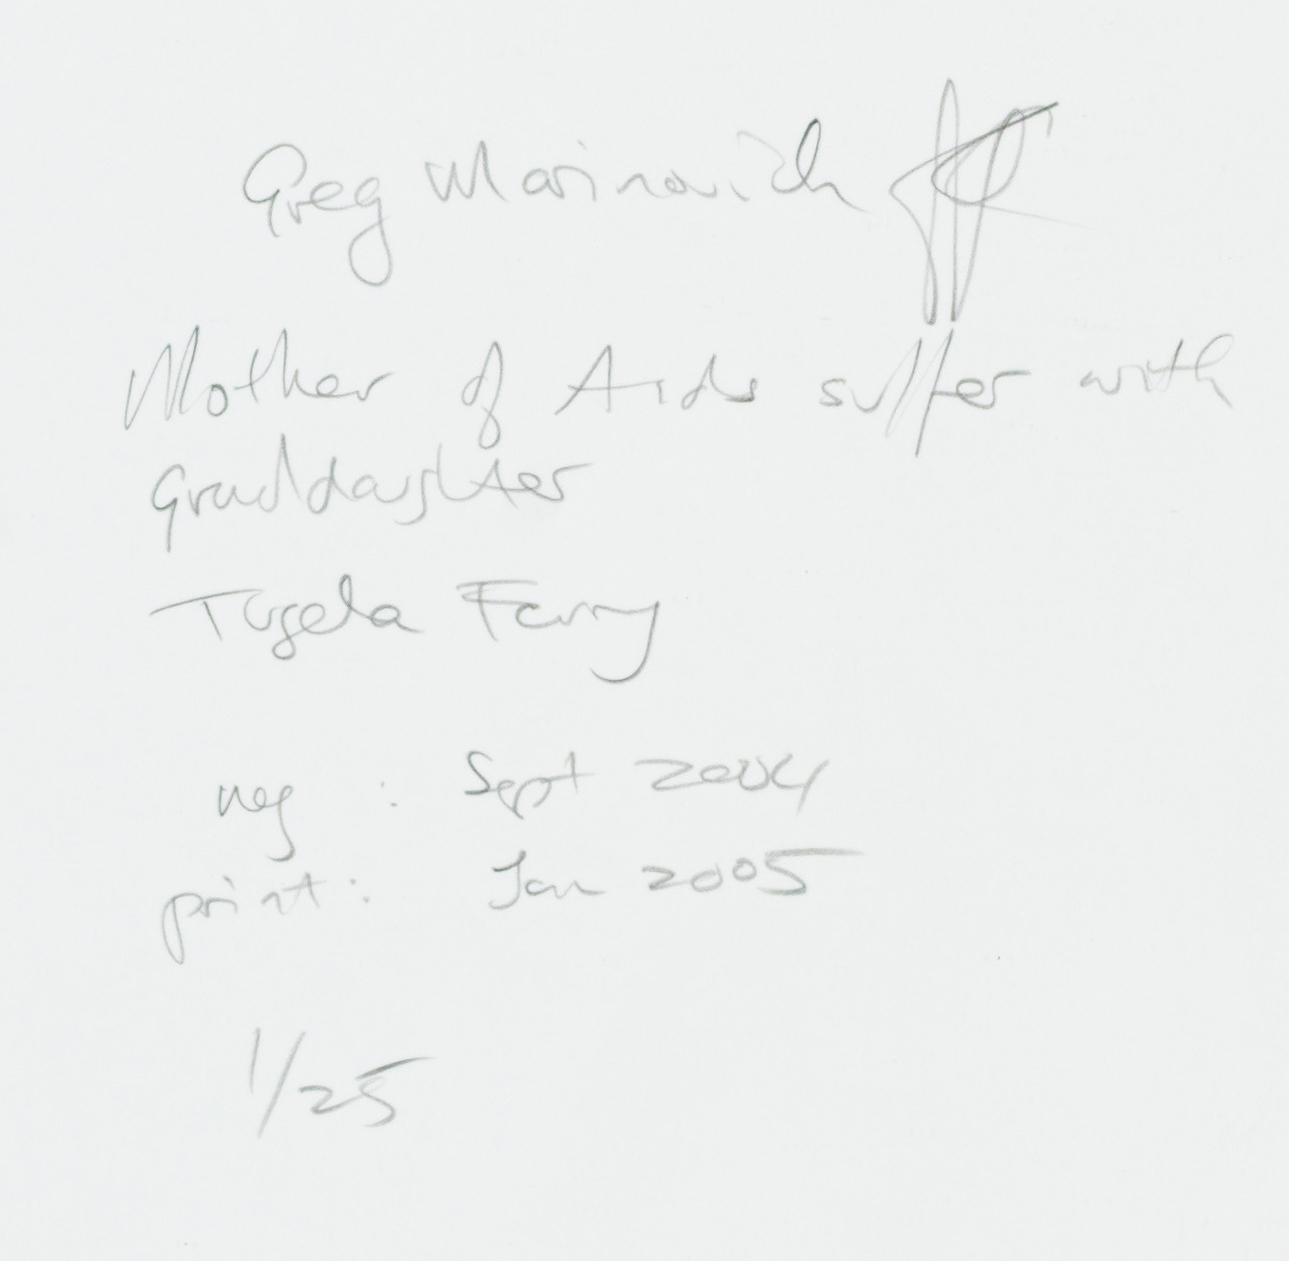 Greg Marinovich
Mother of Aids suffer with
Granddaughter
Tugela Ferry
neg : Sept 2004
print : Jan 2005
1/25